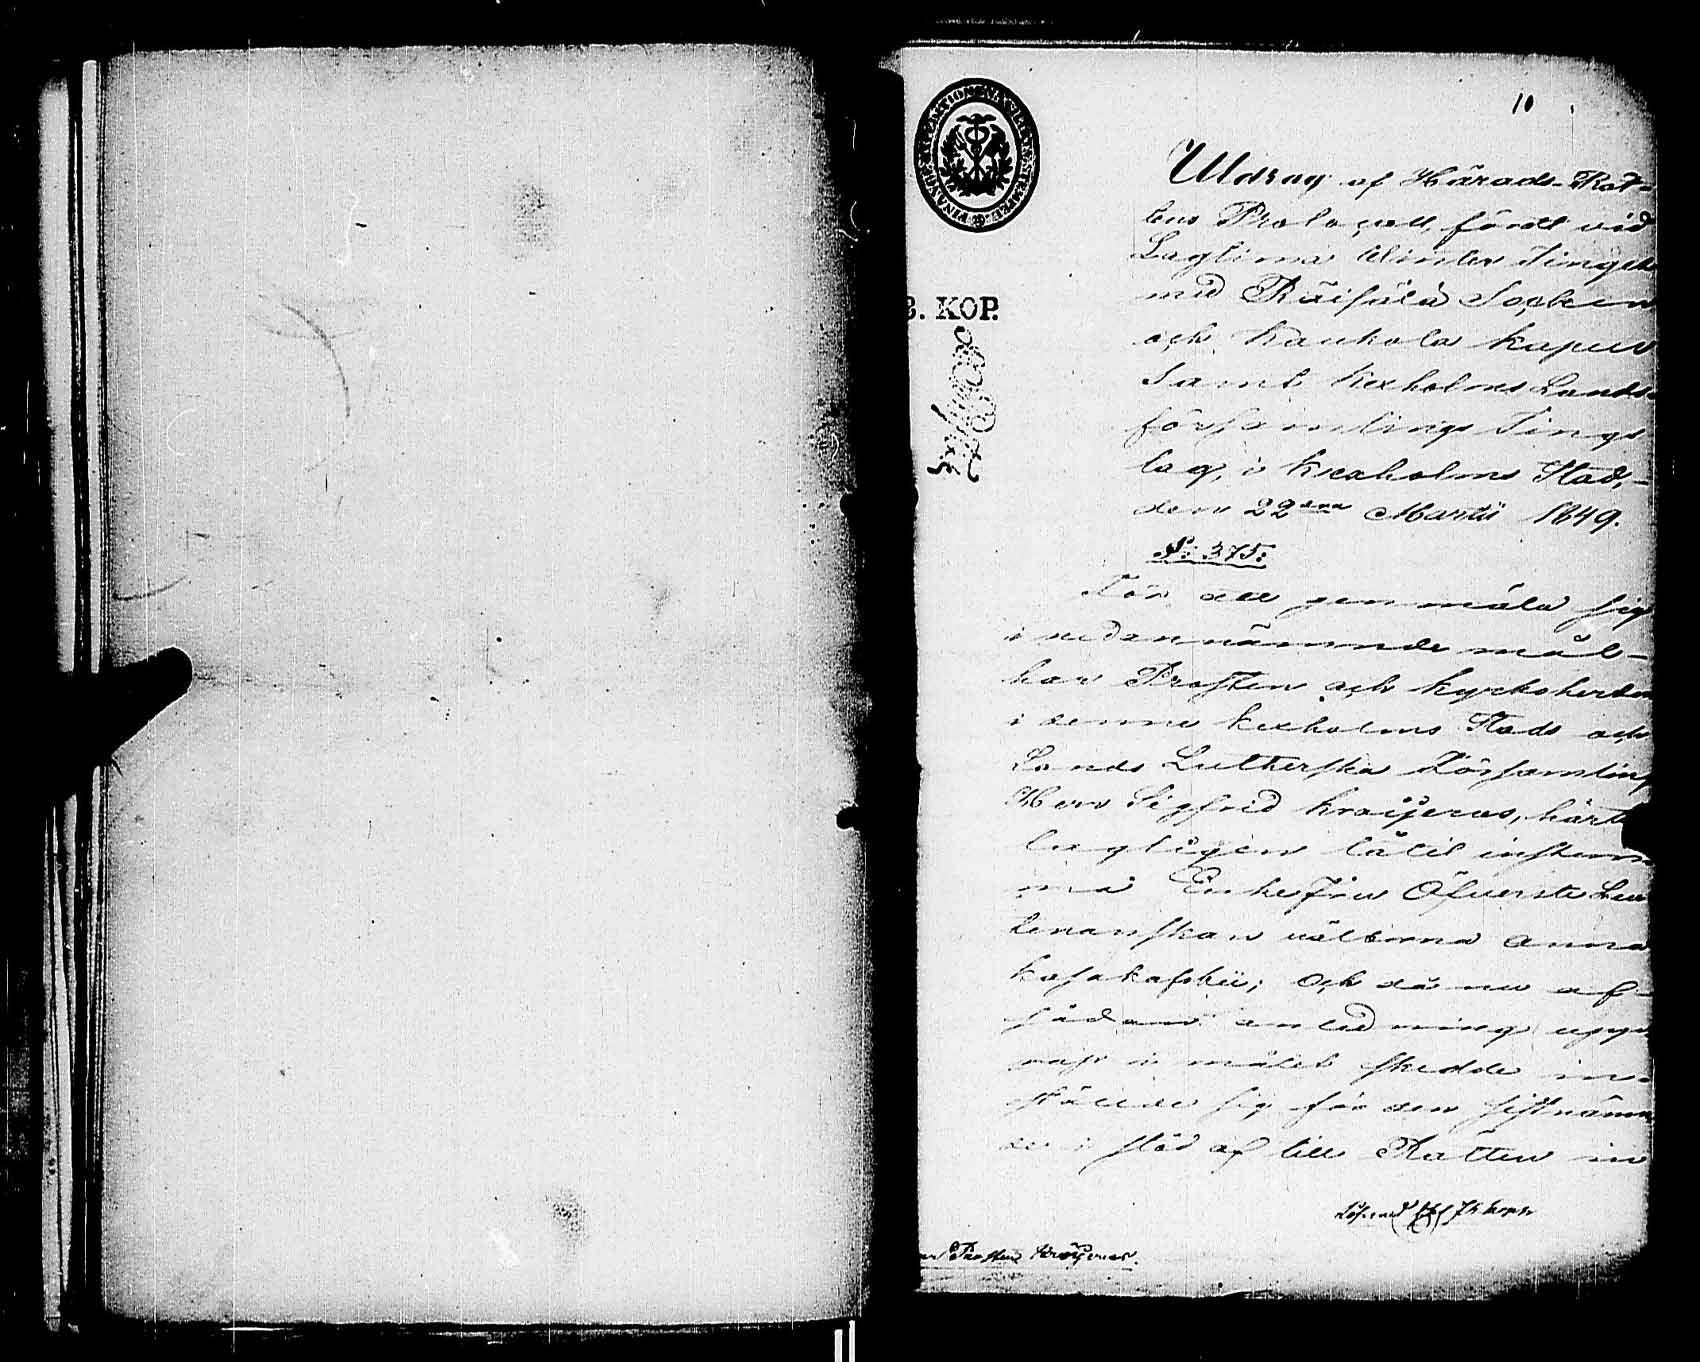 10
Utdrag af Härads-Rät-
tens Protocoll, fördt vid
Lagtima Winter Tinget
med Räisälä Socken
och Kaukola Kapell
samt Kexholms Lands-
församlings Tings
lag, i Kexholms Stad,
den 22dra Martii 1849.
§: 375:
För att genmäla sig
i nedannämnde mål
har Prosten och Kyrkoherden
i denne Kexholms Stads och
Lands Lutherska Församling
Herr Sigfrid Kroijerus, härtill
lagligen låtit instem-
ma Enkefru Öfverste Leu
tenanskan välborna Anna
Kasakafskii; och då nu af
sådan anledning uppe
rop i målet skedde in-
stälde sig för den sistnämn
de i stöd af till Rätten in
Prosten Kroijerus.
3. KOP.
FINANCE EXPEDITIONEN